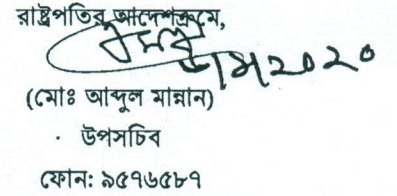 রাষ্ট্রপতির আদেশক্রমে,
(মোঃ আব্দুল মান্নান)
উপসচিব
ফোন: ৯৫৭৬৫৮৭